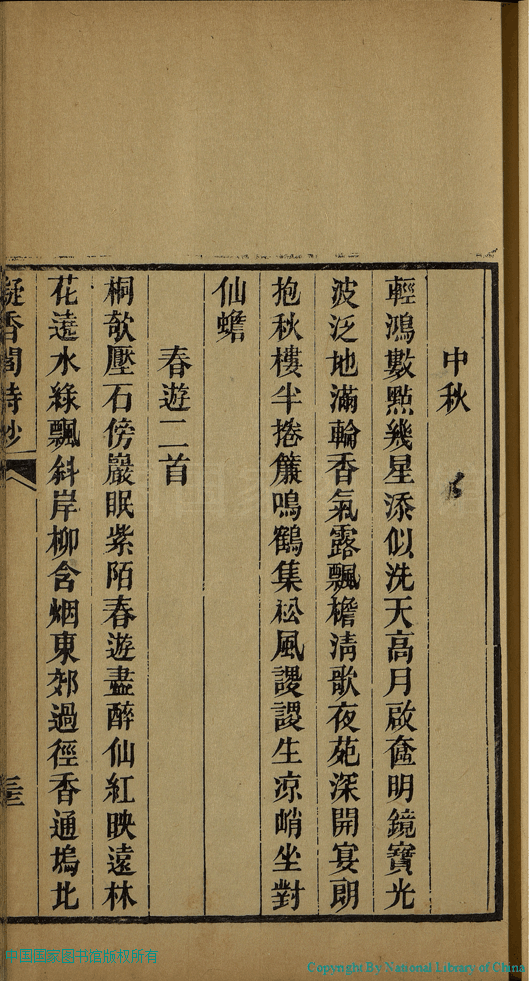 中秋
輕鴻數點幾星添似洗天高月啟奩明鏡寶光
波泛地滿輪香氣露飄檐清歌夜苑深開宴朗
抱秋樓半捲簾鳴鶴集松風謖謖生凉峭坐對
仙蟾
春遊二首
桐欹壓石傍巖眠紫陌春遊盡醉仙紅映遠林
花遶水綠飄斜岸柳含烟東郊過徑香通塢北
凝香閣詩鈔
三三
中国国家图书馆版权所有
Copyright By National Library of China